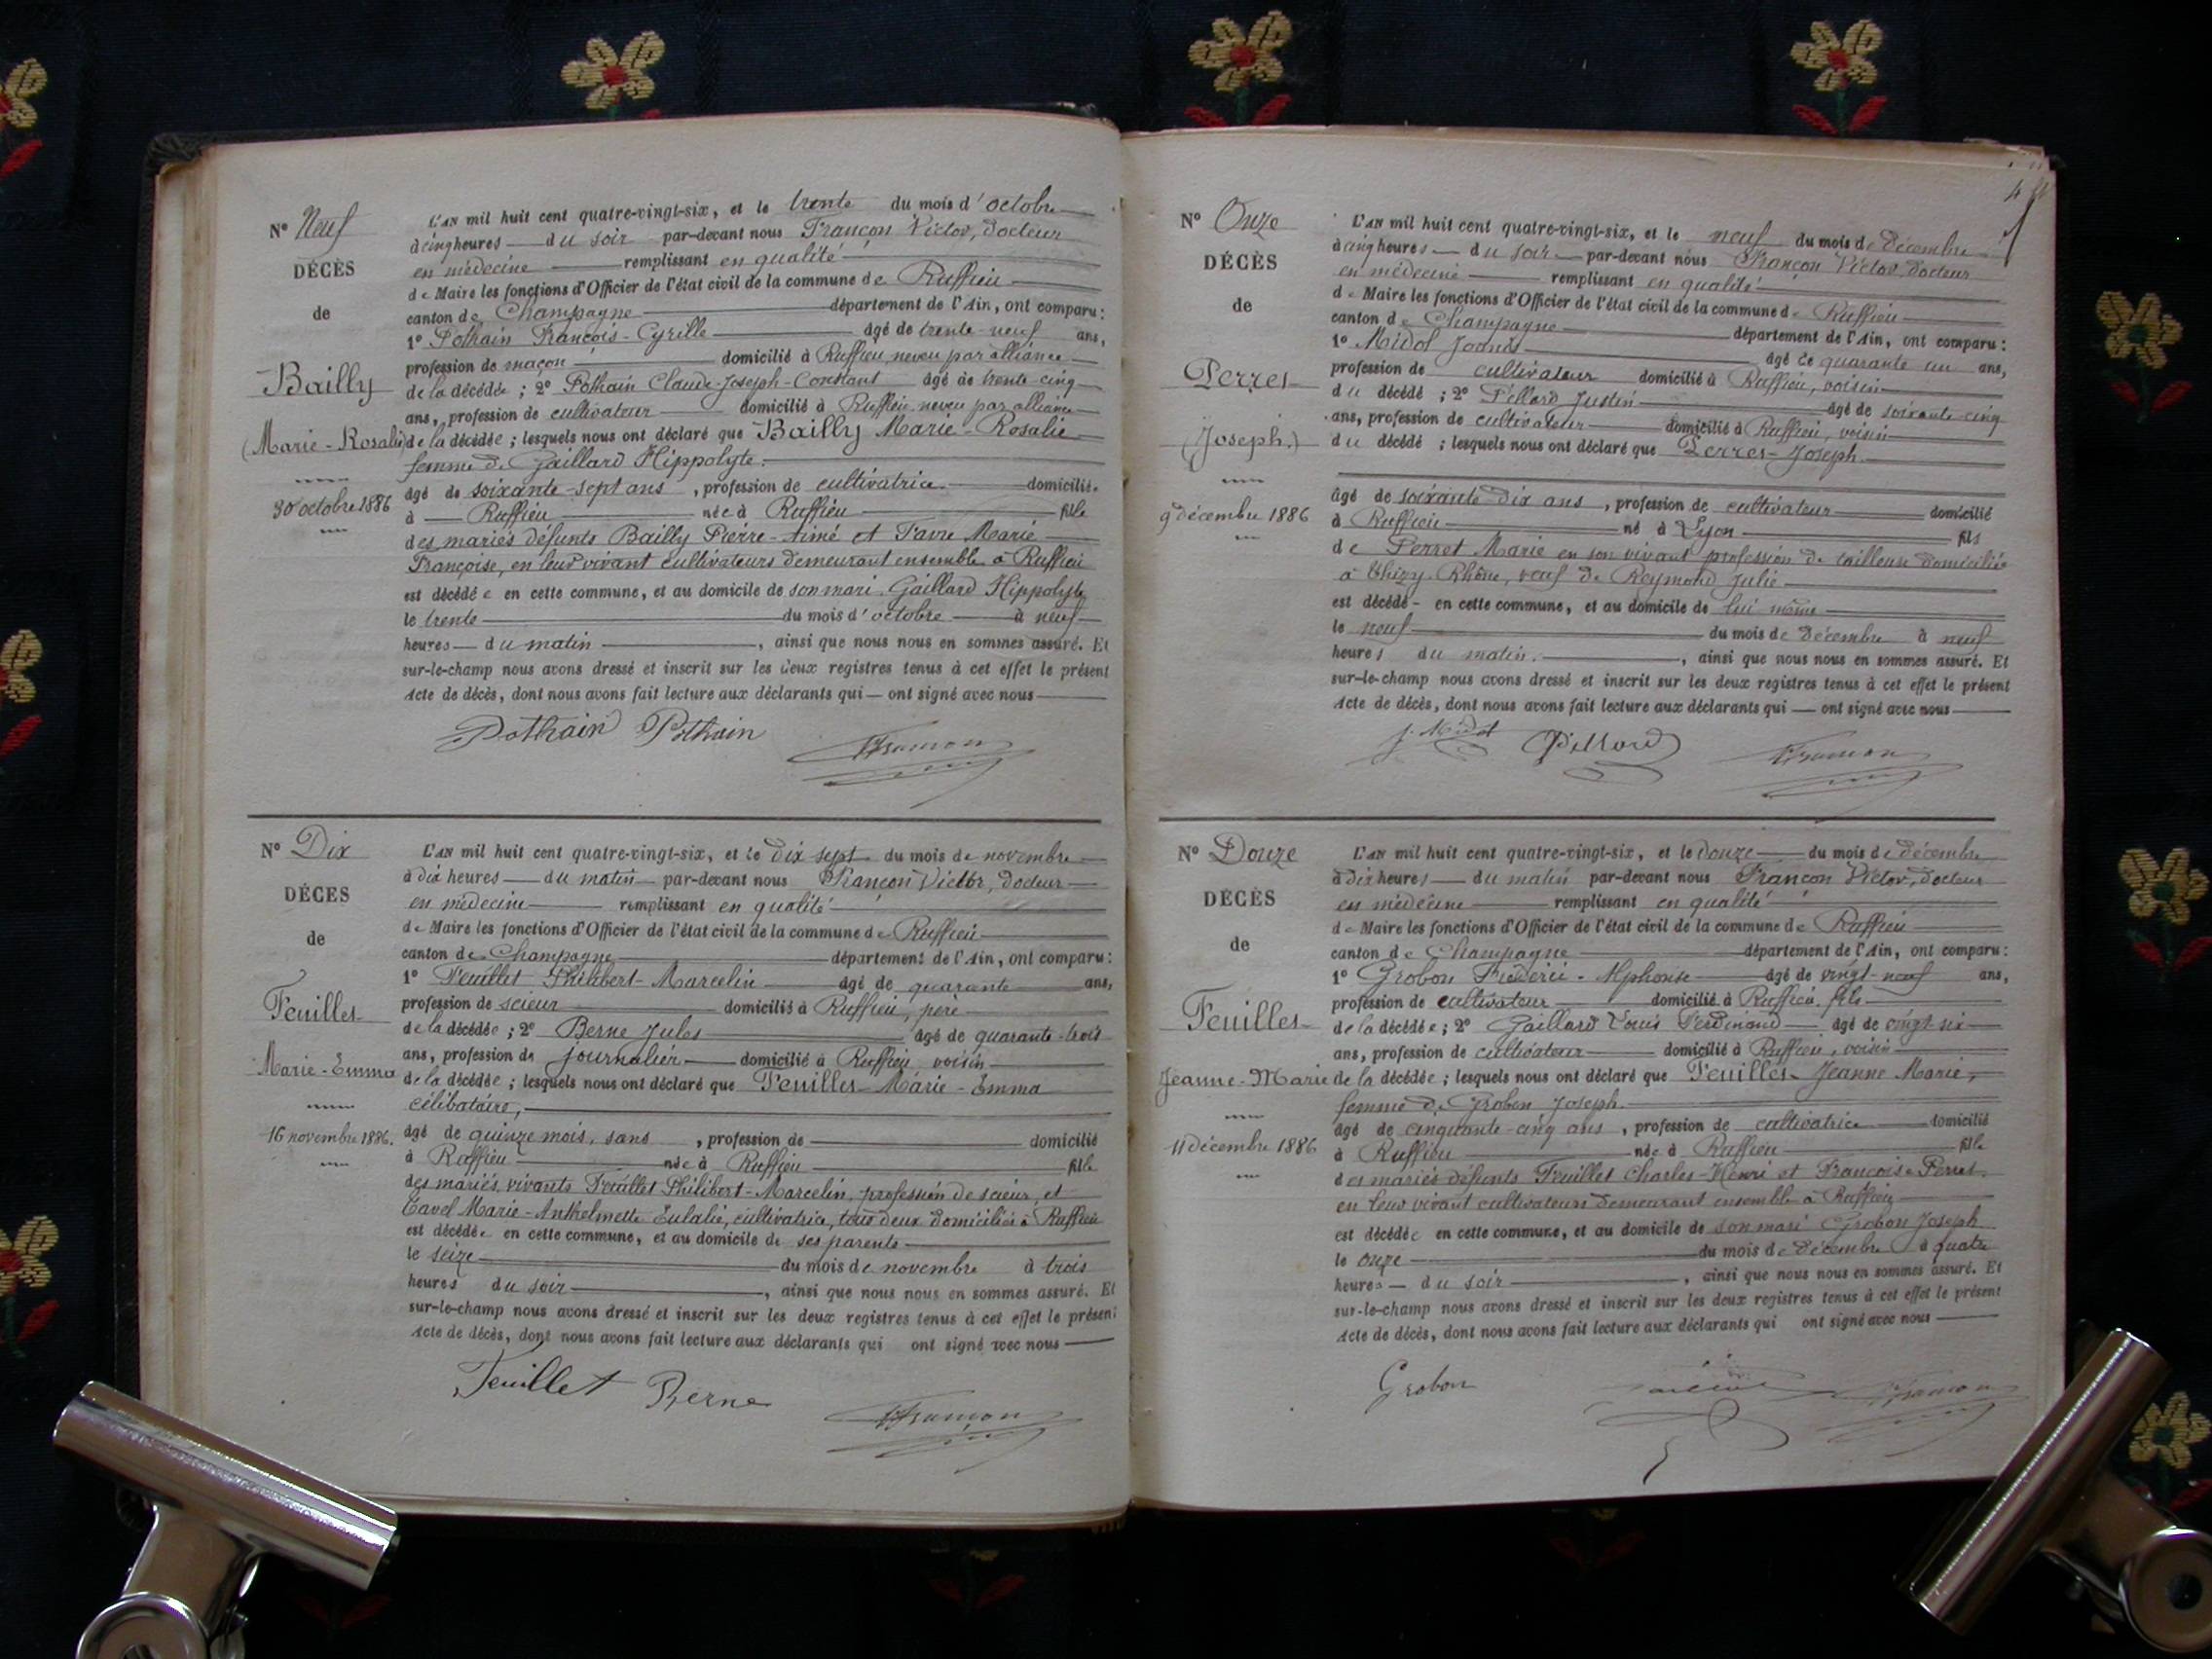 N° Neuf
DÉCÈS
de
Bailly
(Marie-Rosalie)
30 octobre 1886
L'AN mil huit cent quatre-vingt-six, et le trente du mois d'octobre
à cinq heures du soir par-devant nous Françon Victor, docteur
en médecine remplissant en qualité
de Maire les fonctions d'Officier de l'état civil de la commune de Ruffieu
canton de Champagne département de l'Ain, ont comparu :
1° Pothain François-Cyrille âgé de trente-neuf ans,
profession de maçon domicilié à Ruffieu, neveu par alliance
de la décédée ; 2° Pothain Claude-Joseph-Constant âgé de trente-cinq
ans, profession de cultivateur domicilié à Ruffieu, neveu par alliance
de la décédée ; lesquels nous ont déclaré que Bailly Marie-Rosalie
femme de Gaillard Hippolyte.
âgé de soixante-sept ans, profession de cultivatrice domicilié
à Ruffieu née à Ruffieu fille
des mariés défunts Bailly Pierre-Aimé et Favre Marie
Françoise, en leur vivant cultivateurs demeurant ensemble à Ruffieu
est décédée en cette commune, et au domicile de son mari Gaillard Hippolyte
le trente du mois d'octobre à neuf
heures du matin, ainsi que nous nous en sommes assuré. Et
sur-le-champ nous avons dressé et inscrit sur les deux registres tenus à cet effet le présent
Acte de décès, dont nous avons fait lecture aux déclarants qui ont signé avec nous
Pothain Pothain VFrançon
N° Dix
DÉCÈS
de
Feuillet
Marie-Emma
16 novembre 1886.
L'AN mil huit cent quatre-vingt-six, et le dix sept du mois de novembre
à dix heures du matin par-devant nous Françon Victor, docteur
en médecine remplissant en qualité
de Maire les fonctions d'Officier de l'état civil de la commune de Ruffieu
canton de Champagne département de l'Ain, ont comparu :
1° Feuillet Philibert-Marcelin âgé de quarante ans,
profession de scieur domicilié à Ruffieu, père
de la décédée ; 2° Berne Jules âgé de quarante-trois
ans, profession de journalier domicilié à Ruffieu, voisin
de la décédée ; lesquels nous ont déclaré que Feuillet Marie-Emma
célibataire,
âgé de quinze mois, sans, profession de domicilié
à Ruffieu née à Ruffieu fille
des mariés vivants Feuillet Philibert-Marcelin, profession de scieur, et
Cavel Marie-Anthelmette Eulalie, cultivatrice, tous deux domiciliés à Ruffieu
est décédée en cette commune, et au domicile de ses parents
le seize du mois de novembre à trois
heures du soir, ainsi que nous nous en sommes assuré. Et
sur-le-champ nous avons dressé et inscrit sur les deux registres tenus à cet effet le présent
Acte de décès, dont nous avons fait lecture aux déclarants qui ont signé avec nous
Feuillet Berne VFrançon
N° Onze
DÉCÈS
de
Perret
(Joseph.)
9 décembre 1886
L'AN mil huit cent quatre-vingt-six, et le neuf du mois de décembre
à cinq heures du soir par-devant nous Françon Victor, docteur
en médecine remplissant en qualité
de Maire les fonctions d'Officier de l'état civil de la commune de Ruffieu
canton de Champagne département de l'Ain, ont comparu :
1° Midol Joanis âgé de quarante un ans,
profession de cultivateur domicilié à Ruffieu, voisin
du décédé ; 2° Pillard Justin âgé de soixante-cinq
ans, profession de cultivateur domicilié à Ruffieu, voisin
du décédé ; lesquels nous ont déclaré que Perret Joseph.
âgé de soixante dix ans, profession de cultivateur domicilié
à Ruffieu né à Lyon fils
de Perret Marie en son vivant profession de tailleuse domiciliée
à Thizy-Rhône, veuf de Reymond Julie
est décédé en cette commune, et au domicile de lui même
le neuf du mois de décembre à neuf
heures du matin, ainsi que nous nous en sommes assuré. Et
sur-le-champ nous avons dressé et inscrit sur les deux registres tenus à cet effet le présent
Acte de décès, dont nous avons fait lecture aux déclarants qui ont signé avec nous
J. Midol Pillard VFrançon
N° Douze
DÉCÈS
de
Feuillet
Jeanne-Marie
11 décembre 1886
L'AN mil huit cent quatre-vingt-six, et le douze du mois de décembre
à dix heures du matin par-devant nous Françon Victor, docteur
en médecine remplissant en qualité
de Maire les fonctions d'Officier de l'état civil de la commune de Ruffieu
canton de Champagne département de l'Ain, ont comparu :
1° Grobon Frédéric-Alphonse âgé de vingt-neuf ans,
profession de cultivateur domicilié à Ruffieu, fils
de la décédée ; 2° Gaillard Louis Ferdinand âgé de vingt-six
ans, profession de cultivateur domicilié à Ruffieu, voisin
de la décédée ; lesquels nous ont déclaré que Feuillet Jeanne Marie,
femme de Grobon Joseph.
âgé de cinquante-cinq ans, profession de cultivatrice domicilié
à Ruffieu née à Ruffieu fille
des mariés défunts Feuillet Charles-Henri et Françoise Perret.
en leur vivant cultivateurs demeurant ensemble à Ruffieu
est décédée en cette commune, et au domicile de son mari Grobon Joseph
le onze du mois de décembre à quatre
heures du soir, ainsi que nous nous en sommes assuré. Et
sur-le-champ nous avons dressé et inscrit sur les deux registres tenus à cet effet le présent
Acte de décès, dont nous avons fait lecture aux déclarants qui ont signé avec nous
Grobon VFrançon